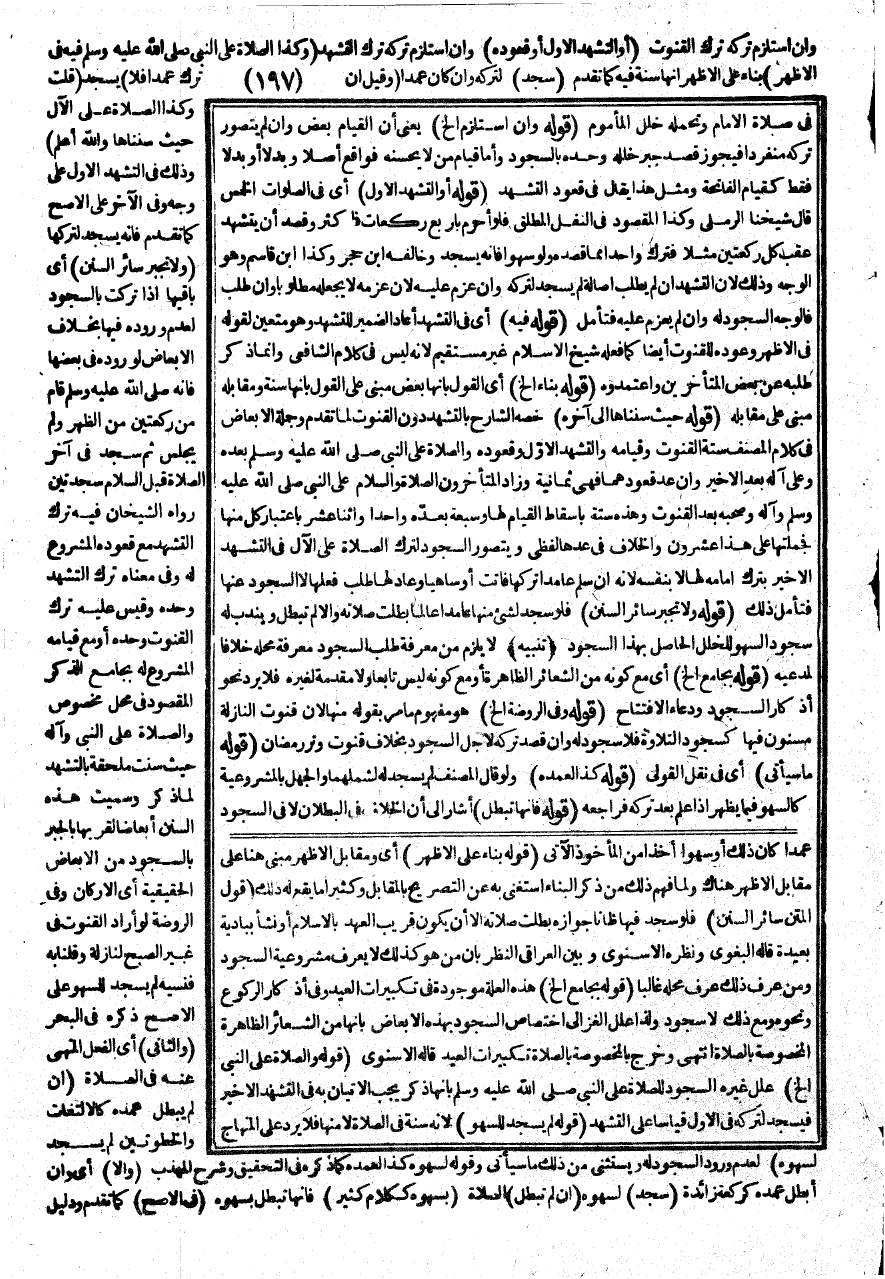 وان استلزم تركه ترك القنوت (أو التشهد الاول أو قعوده) وان استلزم تركه ترك التشهد (وكذا الصلاة على النبي صلى الله عليه وسلم فيه فى
الاظهر) بناء على الاظهر انها سنة فيه كما تقدم (سجد) لتركه وان كان عمدا (وقيل ان (١٩٧) ترك عمدا فلا) يسجد (قلت
وكذا الصلاة على الآل
حيث سنناها والله أعلم)
وذلك فى التشهد الاول على
وجه وفى الآخر على الاصح
كما تقدم فانه يسجد لتركها
(ولا تجبر سائر السنن) أى
باقيها اذا تركت بالسجود
لعدم وروده فيها بخلاف
الابعاض لوروده فى بعضها
فانه صلى الله عليه وسلم قام
من ركعتين من الظهر ولم
يجلس ثم سجد فى آخر
الصلاة قبل السلام سجدتين
رواه الشيخان فيه ترك
التشهد مع قعوده المشروع
له وفى معناه ترك التشهد
وحده وقيس عليه ترك
القنوت وحده أو مع قيامه
المشروع له بجامع الذكر
المقصود فى محل مخصوص
والصلاة على النبى وآله
حيث سنت ملحقة بالتشهد
لما ذكر وسميت هذه
السنن أبعاضا لقربها بالجبر
بالسجود من الابعاض
الحقيقية أى الاركان وفى
الروضة لو أراد القنوت فى
غير الصبح لنازلة وقلنا به
فنسيه لم يسجد للسهو على
الاصح ذكره فى البحر
(والثانى) أى الفعل المنهى
عنه فى الصلاة (ان
لم يبطل عمده كالالتفات
والخطوتين لم يسجد
لسهوه) لعدم ورود السجود له ويستثنى من ذلك ما سيأتى وقوله لسهوه كذا العمده كما ذكره فى التحقيق وشرح المهذب (والا) أى وان
أبطل عمده كركعة زائدة (سجد) لسهوه (ان لم تبطل) الصلاة (بسهوه ككلام كثير) فانها تبطل بسهوه (فى الاصح) كما تقدم ودليل
فى صلاة الامام وتحمله خلل المأموم (قوله وان استلزم الخ) يعنى أن القيام بعض وان لم يتصور
تركه منفردا فيجوز قصد جبر خلله وحده بالسجود وأما قيام من لا يحسنه فواقع أصلا وبدلا أو بدلا
فقط كقيام الفاتحة ومثل هذا يقال فى قعود التشهد (قوله أو التشهد الاول) أى فى الصلوات الخمس
قال شيخنا الرملى وكذا المقصود فى النفل المطلق فلو أحرم بار بع ركعات فاكثر وقصد أن يتشهد
عقب كل ركعتين مثلا فترك واحدا مما قصده ولو سهوا فانه يسجد وخالفه ابن حجر وكذا ابن قاسم وهو
الوجه وذلك لان التشهد ان لم يطلب اصالة لم يسجد لتركه وان عزم عليه لان عزمه لا يجعله مطلوبا وان طلب
فالوجه السجود له وان لم يعزم عليه فتأمل (قوله فيه) أى فى التشهد أعاد الضمير للتشهد وهو متعين لقوله
فى الاظهر وعوده للقنوت أيضا كما فعله شيخ الاسلام غير مستقيم لانه ليس فى كلام الشافعى وانما ذكر
طلبه عن بعض المتأخرين واعتمدوه (قوله بناء الخ) أى القول بانها بعض مبنى على القول بانها سنة ومقابله
مبنى على مقابله (قوله حيث سنناها الى آخره) خصه الشارح بالتشهد دون القنوت لما تقدم وجملة الابعاض
فى كلام المصنف ستة القنوت وقيامه والتشهد الاول وقعوده والصلاة على النبى صلى الله عليه وسلم بعده
وعلى آله بعد الاخير وان عد قعودهما فهى ثمانية وزاد المتأخرون الصلاة والسلام على النبى صلى الله عليه
وسلم وآله وصحبه بعد القنوت وهذه ستة باسقاط القيام لها وسبعة بعده واحدا واثنا عشر باعتبار كل منها
فجملتها على هذا عشرون والخلاف فى عدها لفظى ويتصور السجود لترك الصلاة على الآل فى التشهد
الاخير بترك امامه لها لا بنفسه لانه ان سلم عامدا تركها فاتت أو ساهيا وعاد لها طلب فعلها لا السجود عنها
فتأمل ذلك (قوله ولا تجبر سائر السنن) فلو سجد لشئ منها عامدا عالما بطلت صلاته والا لم تبطل ويندب له
سجود السهو للخلل الحاصل بهذا السجود ﴿تنبيه﴾ لا يلزم من معرفة طلب السجود معرفة محله خلافا
لمدعيه (قوله بجامع الخ) أى مع كونه من الشعائر الظاهرة أو مع كونه ليس تابعا ولا مقدمة لغيره فلا يرد نحو
أذكار السجود ودعاء الافتتاح (قوله وفى الروضة الخ) هو مفهوم ما مر بقوله منها لان قنوت النازلة
مسنون فيها كسجود التلاوة فلا سجود له وان قصد تركه لاجل السجود بخلاف قنوت وتر رمضان (قوله
ما سيأتى) أى فى نقل القولى (قوله كذا العمده) ولو قال المصنف لم يسجد له لشملهما والجهل بالمشروعية
كالسهو فيما يظهر اذا علم بعد تركه فراجعه (قوله فانها تبطل) أشار الى أن الخلاف فى البطلان لا فى السجود
عمدا كان ذلك أو سهوا أخذا من المأخوذ الآتى (قوله بناء على الاظهر) أى ومقابل الاظهر مبنى هنا على
مقابل الاظهر هناك ولما فهم ذلك من ذكر البناء استغنى به عن التصريح بالمقابل وكثيرا ما يقع له ذلك (قول
المتن سائر السنن) فلو سجد فيها ظانا جوازه بطلت صلاته الا أن يكون قريب العهد بالاسلام أو نشأ ببادية
بعيدة قاله البغوى ونظر ه الاسنوى و بين العراقى النظر بان من هو كذلك لا يعرف مشروعية السجود
ومن عرف ذلك عرف محله غالبا (قوله بجامع الخ) هذه العلة موجودة فى تكبيرات العيد وفى أذكار الركوع
ونحوه ومع ذلك لا سجود ولقد اعلل الغزالى اختصاص السجود بهذه الابعاض بانها من الشعائر الظاهرة
المخصوصة بالصلاة انتهى وخرج بالمخصوصة بالصلاة تكبيرات العيد قاله الاسنوى (قوله والصلاة على النبى
الخ) علل غيره السجود للصلاة على النبى صلى الله عليه وسلم بانها ذكر يجب الاتيان به فى التشهد الاخير
فيسجد لتركه فى الاول قياسا على التشهد (قوله لم يسجد للسهو) لانه سنة فى الصلاة لا منها فلا يرد على المنهاج